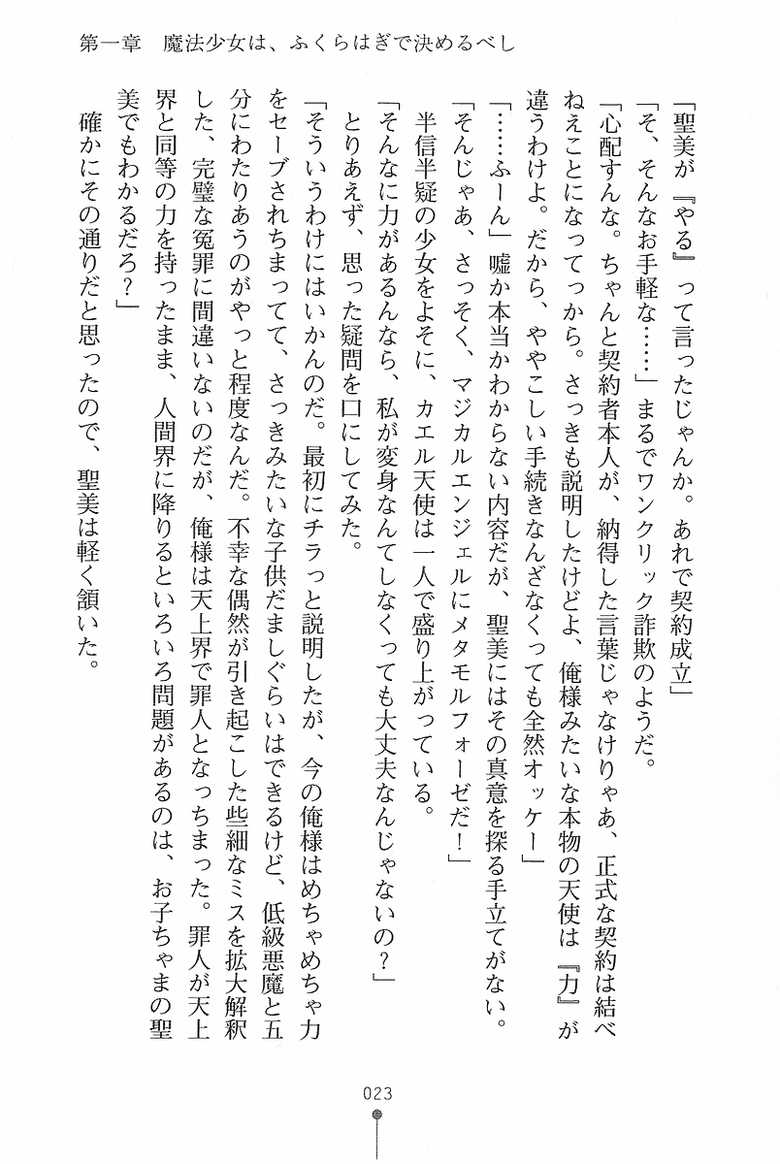 第一章　魔法少女は、ふくらはぎで決めるべし
「聖美が『やる』って言ったじゃんか。あれで契約成立」
「そ、そんなお手軽な……」まるでワンクリック詐欺のようだ。
「心配すんな。ちゃんと契約者本人が、納得した言葉じゃなけりゃあ、正式な契約は結べ
ねえことになってっから。さっきも説明したけどよ、俺様みたいな本物の天使は『力』が
違うわけよ。だから、ややこしい手続きなんざなくっても全然オッケー」
「……ふーん」嘘か本当かわからない内容だが、聖美にはその真意を探る手立てがない。
「そんじゃあ、さっそく、マジカルエンジェルにメタモルフォーゼだ！」
半信半疑の少女をよそに、カエル天使は一人で盛り上がっている。
「そんなに力があるんなら、私が変身なんてしなくっても大丈夫なんじゃないの？」
とりあえず、思った疑問を口にしてみた。
「そういうわけにはいかんのだ。最初にチラっと説明したが、今の俺様はめちゃめちゃ力
をセーブされちまってて、さっきみたいな子供だましぐらいはできるけど、低級悪魔と五
分にわたりあうのがやっと程度なんだ。不幸な偶然が引き起こした些細なミスを拡大解釈
した、完璧な冤罪に間違いないのだが、俺様は天上界で罪人となっちまった。罪人が天上
界と同等の力を持ったまま、人間界に降りるといろいろ問題があるのは、お子ちゃまの聖
美でもわかるだろ？」
確かにその通りだと思ったので、聖美は軽く頷いた。
023